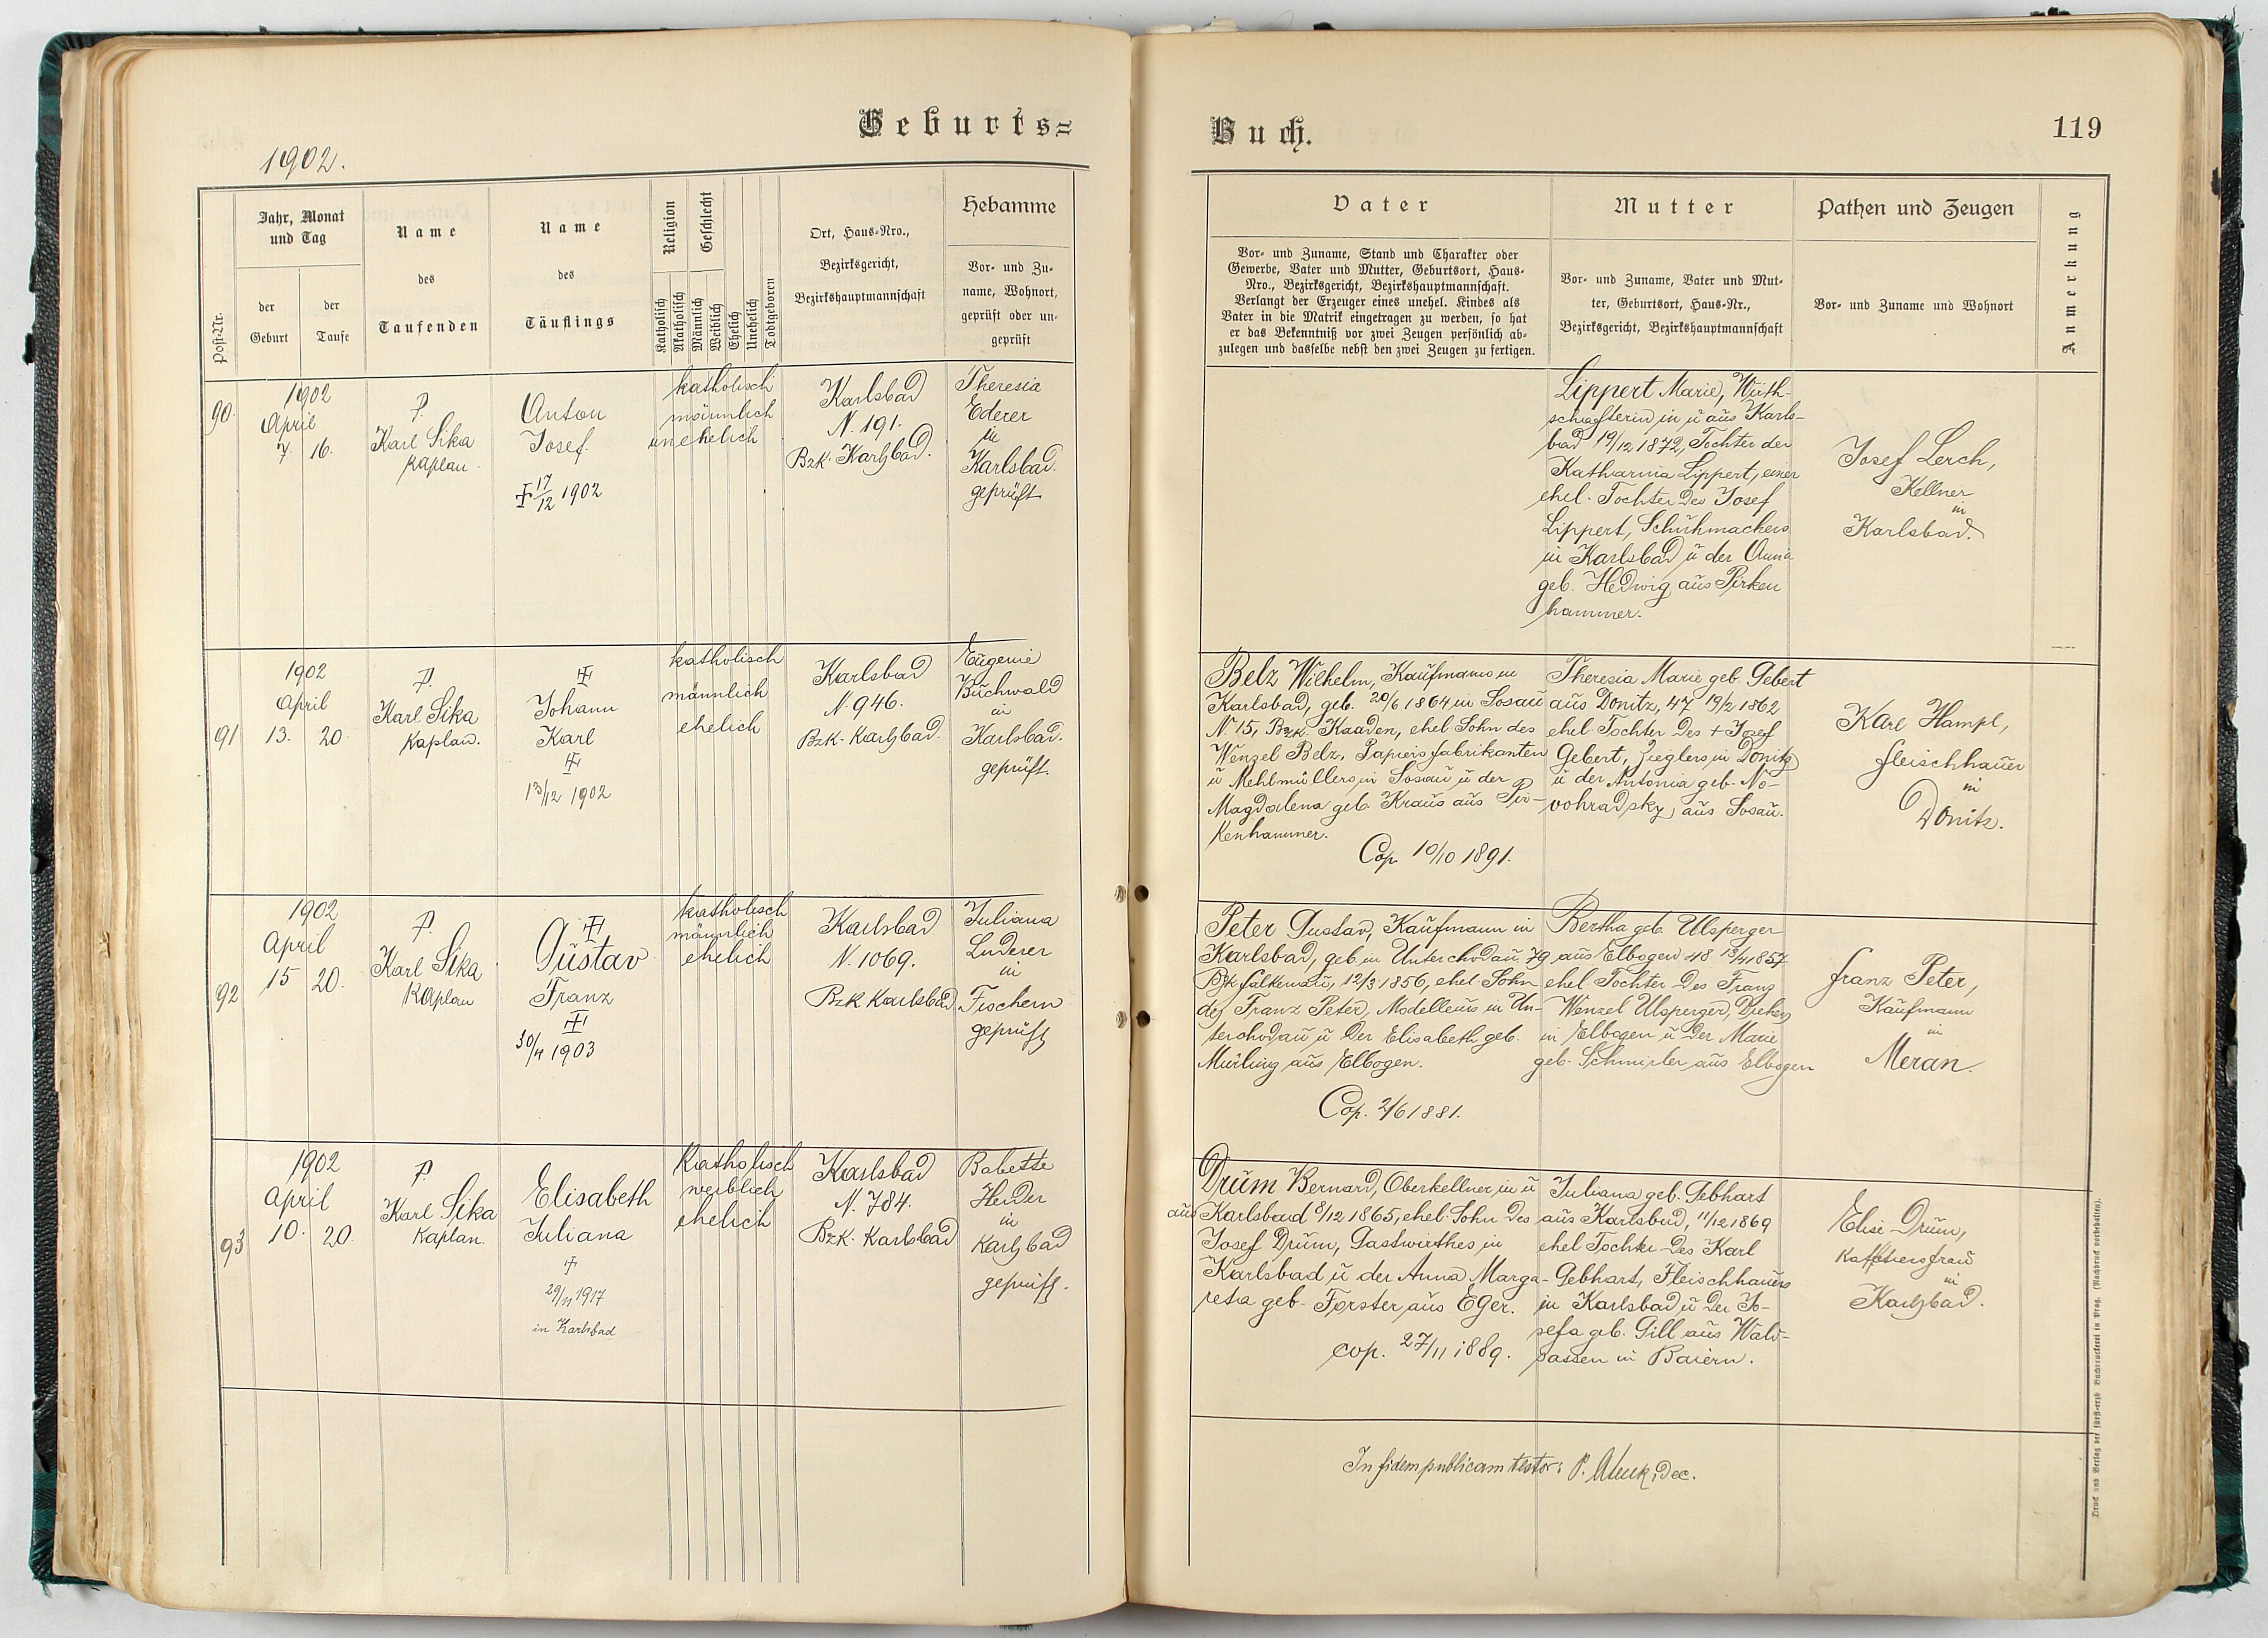 Geburts=
1902.
Post-Nr.
Jahr, Monat
und Tag
der
Geburt
der
Taufe
Name
des
Taufenden
Name
des
Täuflings
Religion
Katholisch
Akatholisch
Geschlecht
Männlich
Weiblich
Ehelich
Unehelich
Todtgeboren
Ort, Haus-Nro.,
Bezirksgericht,
Bezirkshauptmannschaft
Hebamme
Vor- und Zu-
name, Wohnort,
geprüft oder un-
geprüft
90.
1902
April
7. 16.
P.
Karl Sika
Kaplan.
Anton
Josef.
17/12 1902
katholisch
männlich
unehelich
Karlsbad
N. 191.
Bzk. Karlsbad.
Theresia
Ederer
in
Karlsbad.
geprüft
91
1902
April
13. 20.
P.
Karl Sika
Kaplan.
Johann
Karl
13/12 1902
katholisch
männlich
ehelich
Karlsbad
N. 946.
Bzk. Karlsbad.
Eugenie
Buchwald
in
Karlsbad.
geprüft.
92
1902
April
15 20.
P.
Karl Sika
Kaplan
Gustav
Franz
30/4 1903
katholisch
männlich
ehelich
Karlsbad
N. 1069.
Bzk Karlsbad
Juliana
Luderer
in
Fischern
geprüft
93
1902
April
10. 20.
P.
Karl Sika
Kaplan.
Elisabeth
Juliana
29/11 1917
in Karlsbad
Katholisch
weiblich
ehelich
Karlsbad
N. 784.
Bzk. Karlsbad
Babette
Heider
in
Karlsbad
geprüft.
Buch.
119
Vater
Vor- und Zuname, Stand und Charakter oder
Gewerbe, Vater und Mutter, Geburtsort, Haus-
Nro., Bezirksgericht, Bezirkshauptmannschaft.
Verlangt der Erzeuger eines unehel. Kindes als
Vater in die Matrik eingetragen zu werden, so hat
er das Bekenntniß vor zwei Zeugen persönlich ab-
zulegen und dasselbe nebst den zwei Zeugen zu fertigen.
Mutter
Vor- und Zuname, Vater und Mut-
ter, Geburtsort, Haus-Nr.,
Bezirksgericht, Bezirkshauptmannschaft
Pathen und Zeugen
Vor- und Zuname und Wohnort
Anmerkung
Lippert Marie, Wirth-
schafterin in ü aus Karls-
bad 19/12 1872, Tochter der
Katharina Lippert, einer
ehel. Tochter des Josef
Lippert, Schuhmachers
in Karlsbad ü der Anna
geb. Hedwig aus Pirken
hammer.
Josef Lerch,
Kellner
in
Karlsbad.
Belz Wilhelm, Kaufmann in
Karlsbad, geb. 20/6 1864 in Sosau
N. 15, Bzk. Kaaden, ehel Sohn des
Wenzel Belz, Papierfabrikanten
ü Mehlmüllers in Sosau ü der
Magdalena geb. Kraus aus Pir-
kenhammer.
Cop. 10/10 1891.
Theresia Marie geb Gebert
aus Donitz, 47 19/2 1862
ehel Tochter des + Josef
Gebert, Zieglers in Donitz
ü der Antonia geb. No-
vohradsky aus Sosau.
Karl Hampl,
Fleischhauer
in
Donitz.
Peter Gustav, Kaufmann in
Karlsbad, geb. in Unterchodau 79
Bzk Falkenau, 12/3 1856, ehel Sohn
des Franz Peter, Modelleurs in Un-
terchodau ü der Elisabeth geb.
Mürling aus Elbogen.
Cop. 2/6 1881.
Bertha geb. Ulsperger
aus Elbogen 48 13/4 1857
ehel Tochter des Franz
Wenzel Ulsperger, Drehers
in Elbogen ü der Marie
geb. Schmirler aus Elbogen
Franz Peter,
Kaufmann
in
Meran.
Drum Bernard, Oberkellner in ü
aus Karlsbad 8/12 1865, ehel. Sohn des
Josef Drum, Gastwirthes in
Karlsbad ü der Anna Marga-
reta geb. Forster aus Eger.
cop. 27/11 1889.
Juliana geb. Gebhart
aus Karlsbad, 11/12 1869
ehel Tochter des Karl
Gebhart, Fleischhauers
in Karlsbad ü der Jo-
sefa geb. Gill aus Wald-
sassen in Baiern.
Elise Drum,
Kaffetiersfrau
in
Karlsbad.
In fidem publicam testor: P. dec.
Druck und Verlag der fürst-erzb Buchdruckerei in Prag. (Nachdruck vorbehalten).